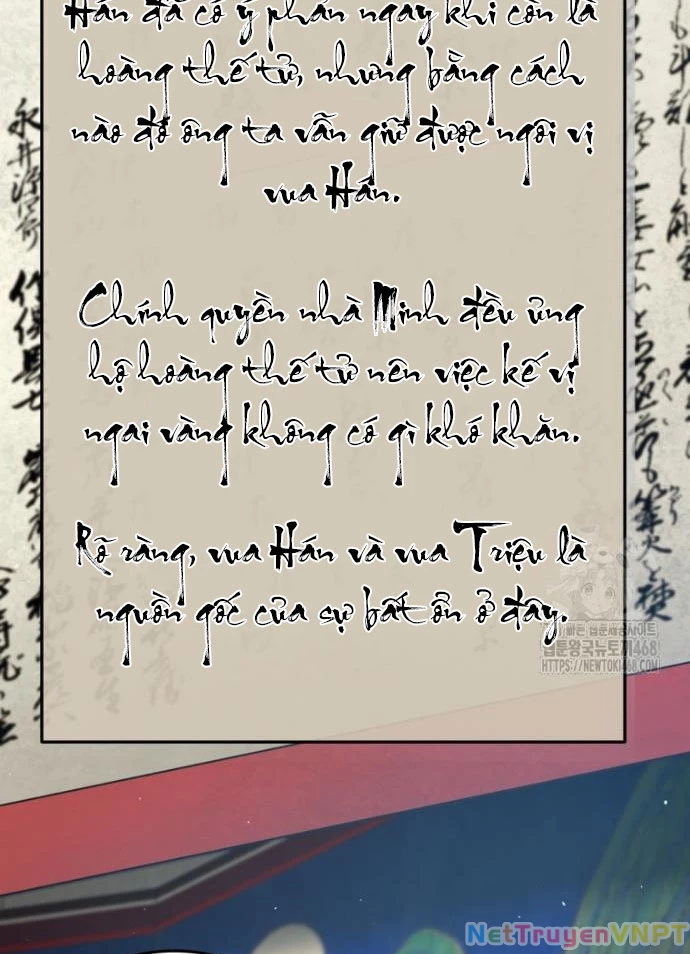 Hán đã có ý phản ngay khi còn là
hoàng thế tử, nhưng bằng cách
nào đó ông ta vẫn giữ được ngôi vị
vua Hán.
Chính quyền nhà Minh đều ủng
hộ hoàng thế tử nên việc kế vị
ngai vàng không có gì khó khăn.
Rõ ràng, vua Hán và vua Triệu là
nguồn gốc của sự bất ổn ở đây.
가장빠른 웹툰제공사이트
웹툰왕국뉴토끼468
HTTPS://NEWTOKI468.COM
NetTruyenVNPT